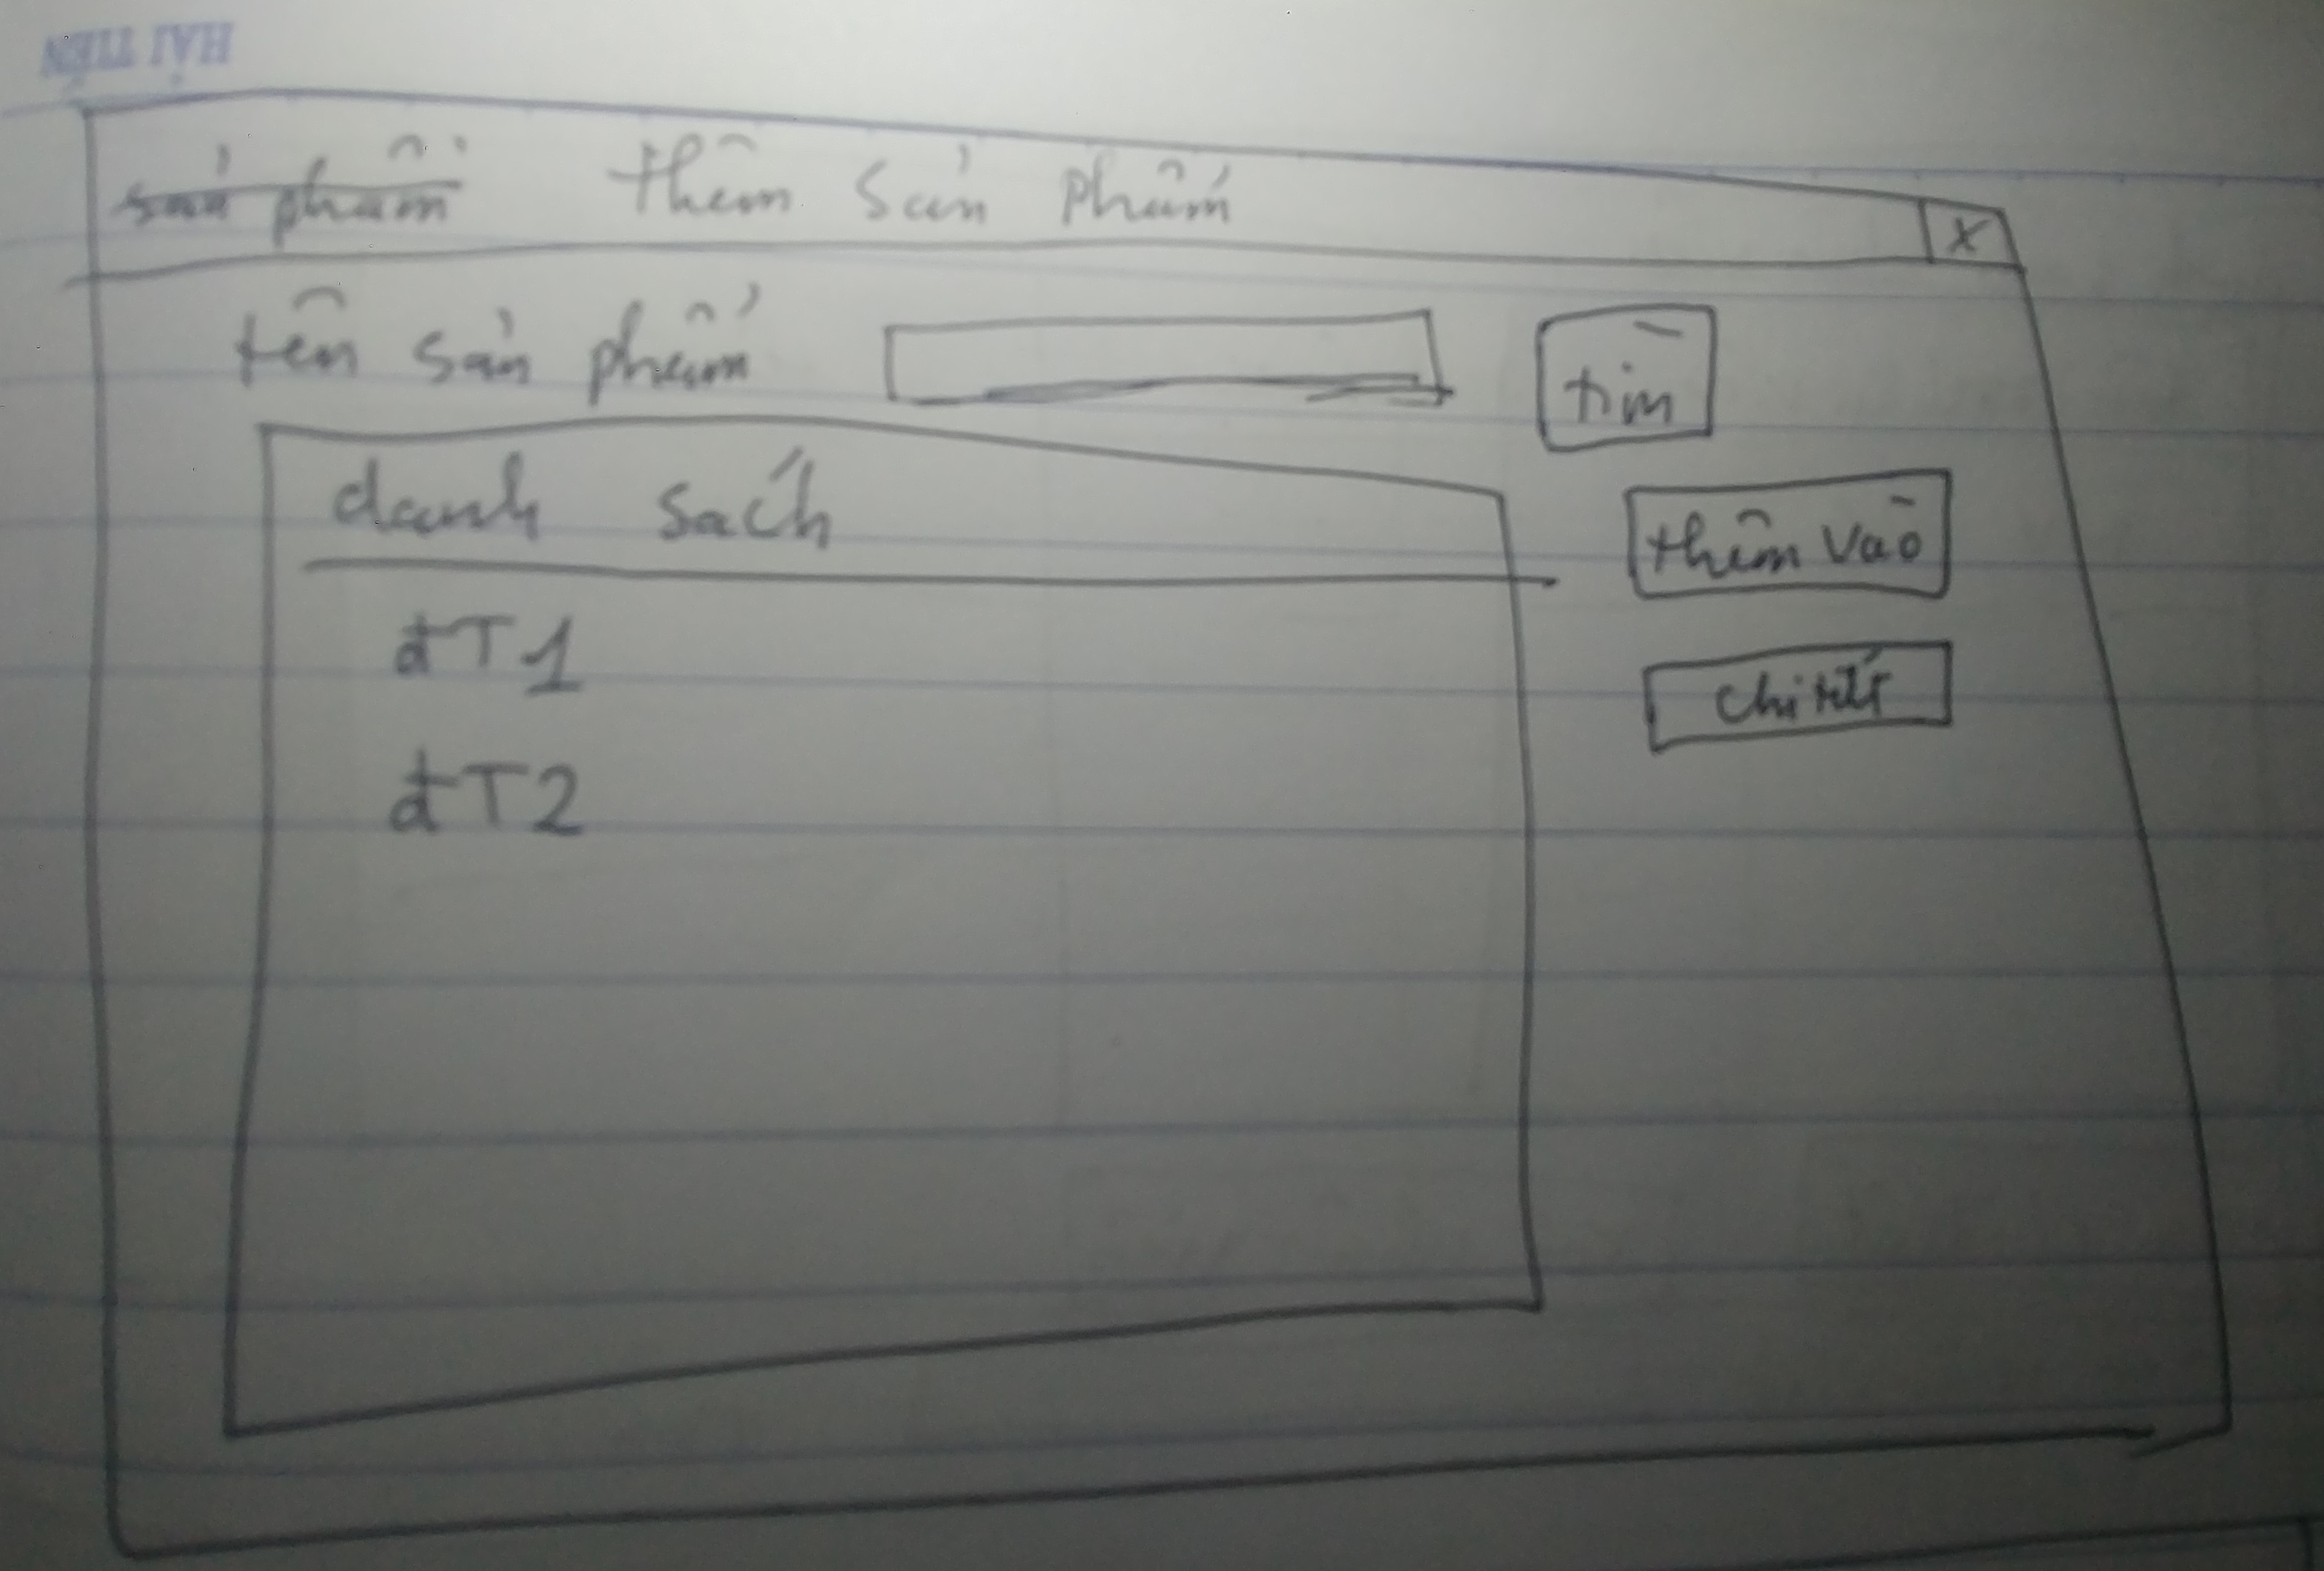 HẢI TIẾN
sản phẩm thêm sản phẩm
X
tên sản phẩm tìm
danh sách thêm vào
đT1 chi tiết
đT2